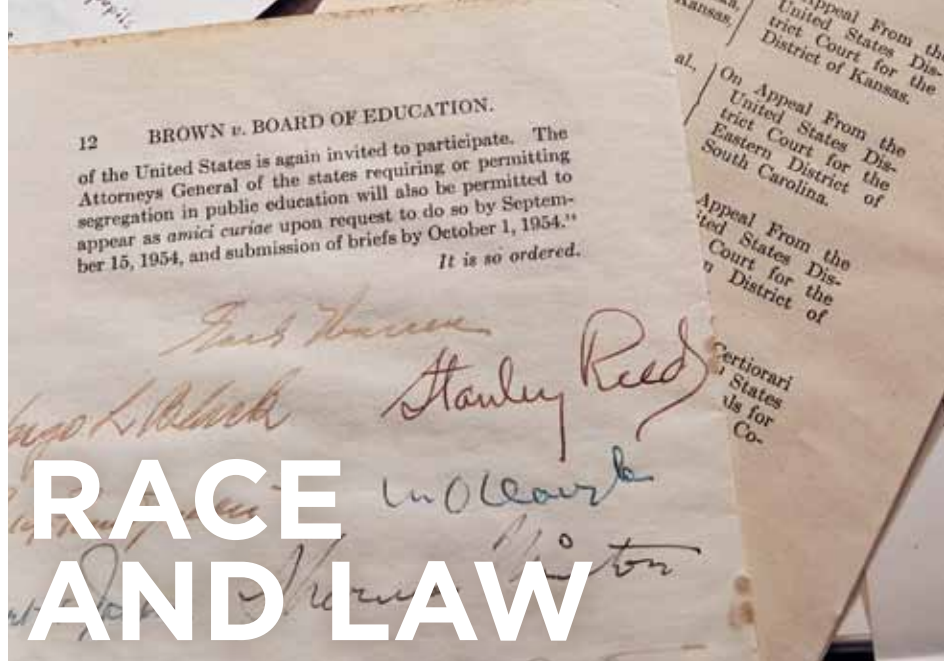 12 BROWN v. BOARD OF EDUCATION.
of the United States is again invited to participate. The
Attorneys General of the states requiring or permitting
segregation in public education will also be permitted to
appear as amici curiae upon request to do so by Septem-
ber 15, 1954, and submission of briefs by October 1, 1954."
It is so ordered.
Earl Warren
Stanley Reed
Hugo L Black
Sherman Minton
Kansas.
Appeal From the
United States Dis-
trict Court for the
District of Kansas.
al.,
On Appeal From the
United States Dis-
trict Court for the
Eastern District of
South Carolina.
Appeal From the
ited States Dis-
Court for the
District of
Certiorari
States
ls for
Co-
RACE
AND LAW